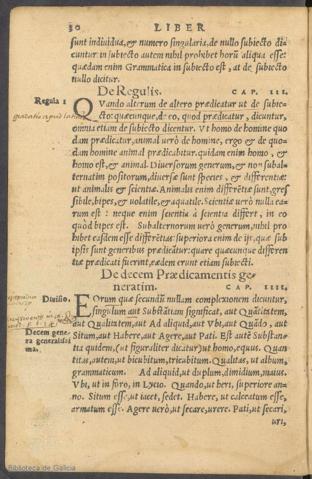 30 LIBER
sunt indiuidua, & numero singularia, de nullo subiecto dicuntur
in subiecto autem nihil prohibet horū aliqua esse:
quædam enim Grammatica in subiecto est, at de subiecto
nullo dicitur.
De Regulis. CAP. III.
Regula 1
QVando alterum de altero prædicatur ut de subiecto:
quæcunque, de eo, quod prædicatur, dicuntur,
omnia etiam de subiecto dicentur. Vt homo de homine quodam
prædicatur, animal uerò de homine, ergo & de quodam
homine animal prædicabitur. quidam enim homo, &
homo est, & animal. Diuersorum generum, & non subalternatim
positorum, diuersæ sunt species, & differentiæ:
ut animalis & scientiæ. Animalis enim differētiæ sunt, gressibile,
bipes, & uolatile, & aquatile. Scientiæ uerò nulla earum
est: neque enim scientia à scientia differt, in eo
quòd bipes est. Subalternorum uerò generum, nihil prohibet
easdem esse differētias: superiora enim de ijs, quæ subipsis
sunt generibus prædicātur: quare quæcunque differentiæ
prædicati fuerint, eædem erunt etiam subiecti.
De decem Prædicamentis generatim.
CAP. IIII.
Diuisio.
EOrum quæ secundū nullam complexionem dicuntur,
singulum aut Substātiam significat, aut Quātitatem,
aut Qualitatem, aut Ad aliquid, aut Vbi, aut Quādo, aut
Situm, aut Habere, aut Agere, aut Pati. Est autē Substantia
Decem genera
generalissima.
quidem, (ut figuraliter dicatur) ut homo, equus. Quantitas,
autem, ut bicubitum, tricubitum. Qualitas, ut album,
grammaticum. Ad aliquid, ut duplum, dimidium, maius.
Vbi, ut in foro, in Lycio. Quando, ut heri, superiore anno.
Situm esse, ut iacet, sedet. Habere, ut calceatum esse,
armatum esse. Agere uerò, ut secare, urere. Pati, ut secari,
uri,
Biblioteca de Galicia